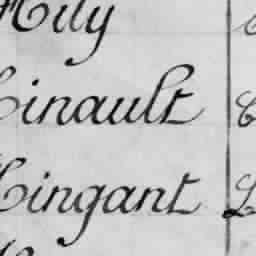 Hily
Hinault
Hingant